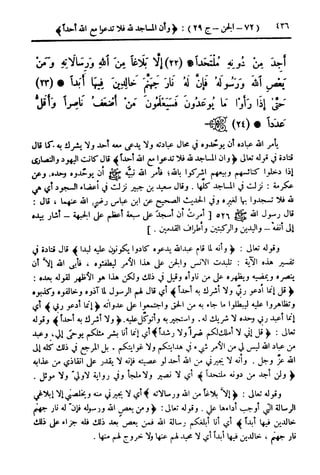 ٤٣٦ (٧٢ - الجن - ج ٢٩) : ﴿ وأن المساجد لله فلا تدعوا مع الله أحداً ﴾
أَجِدَ مِنْ دُونِهِ مُلْتَحَداً * (٢٢) إِلَّا بَلَاغاً مِنَ اللهِ وَرِسَالَاتِهِ وَمَنْ
يَعْصِ اللهَ وَرَسُولَهُ فَإِنَّ لَهُ نَارَ جَهَنَّمَ خَالِدِينَ فِيهَا أَبَداً * (٢٣)
حَتَّى إِذَا رَأَوْا مَا يُوعَدُونَ فَسَيَعْلَمُونَ مَنْ أَضْعَفُ نَاصِراً وَأَقَلُّ
عَدَداً * (٢٤)
يأمر الله عباده أن يوحدوه في محال عبادته ولا يدعى معه أحد ولا يشرك به كما قال
قتادة في قوله تعالى ﴿ وأن المساجد لله فلا تدعوا مع الله أحداً ﴾ قال كانت اليهود والنصارى
إذا دخلوا كنائسهم وبيعهم اشركوا بالله؛ فأمر الله نبيه ﷺ أن يوحدوه وحده. وعن
عكرمة : نزلت في المساجد كلها. وقال سعيد بن جبير نزلت في أعضاء السجود أي هي
لله فلا تسجدوا بها لغيره وفي الحديث الصحيح عن ابن عباس رضي الله عنهما ، قال :
قال رسول الله ﷺ ٥٢٦ [ أمرت أن أسجد على سبعة أعظم على الجبهة - أشار بيده
إلى أنفه - واليدين والركبتين وأطراف القدمين . ]
وقوله تعالى : ﴿ وأنه لما قام عبدالله يدعوه كادوا يكونون عليه لبدا ﴾ قال قتادة في
تفسير هذه الآية : تلبدت الانس والجن على هذا الأمر ليطفئوه ، فأبى الله إلا أن
ينصره ويمضيه ويظهره على من ناوأه وقيل في ذلك ولكن هذا هو الأظهر لقوله بعده :
﴿ قل إنما أدعو ربي ولا أشرك به أحداً ﴾ أي قال لهم الرسول لما آذوه وخالفوه وكذبوه
وتظاهروا عليه ليبطلوا ما جاء به من الحق واجتمعوا على عداوته ﴿ إنما أدعو ربي ﴾ أي
إنما أعبد ربي وحده لا شريك له. واستجير به وأتوكل عليه. ﴿ ولا أشرك به أحداً ﴾ وقوله
تعالى : ﴿ قل إني لا أملك لكم ضراً ولا رشداً ﴾ أي إنما أنا بشر مثلكم يوحى إلي، وعبد
من عباد الله ليس لي من الأمر شيء في هدايتكم ولا غوايتكم . بل المرجع في ذلك كله إلى
الله عز وجل . وأنه لا يجيرني من الله أحد لو عصيته فإنه لا يقدر على انقاذي من عذابه
﴿ ولن أجد من دونه ملتحداً ﴾ أي لا نصير ولا ملجأ وفي رواية لا ولي ولا موئل .
وقوله تعالى : ﴿ إلا بلاغاً من الله ورسالاته ﴾ أي لا يجيرني منه ويخلصني إلا إبلاغي
الرسالة التي أوجب أداءها علي . وقوله تعالى : ﴿ ومن يعص الله ورسوله فإن له نار جهنم
خالدين فيها أبداً ﴾ أي أنا أبلغكم رسالة الله فمن يعص بعد ذلك فله جزاء على ذلك
نار جهنم ، خالدين فيها أبداً أي لا محيد لهم عنها ولا خروج لهم منها .